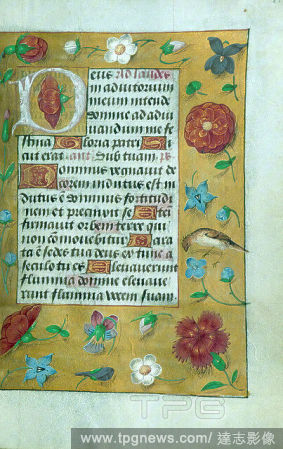 Deus Ad laudes
in adiutorium
meum intende
domine ad adiu
uandum me fe
stina Gloria patri
sicut erat ant. Sub tuam ps
Dominus regnauit de
corem indutus est in
dutus ē dominus fortitudi
nem et precinxit se Etei
firmauit orbem terre qui
non cōmouebitur Para
ta ē sedes tua deus ex tunc a
seculo tu es Eleuauerunt
flumina domine eleuaue
runt flumina vocem suam
TPG
www.tpgnews.com/達志影像